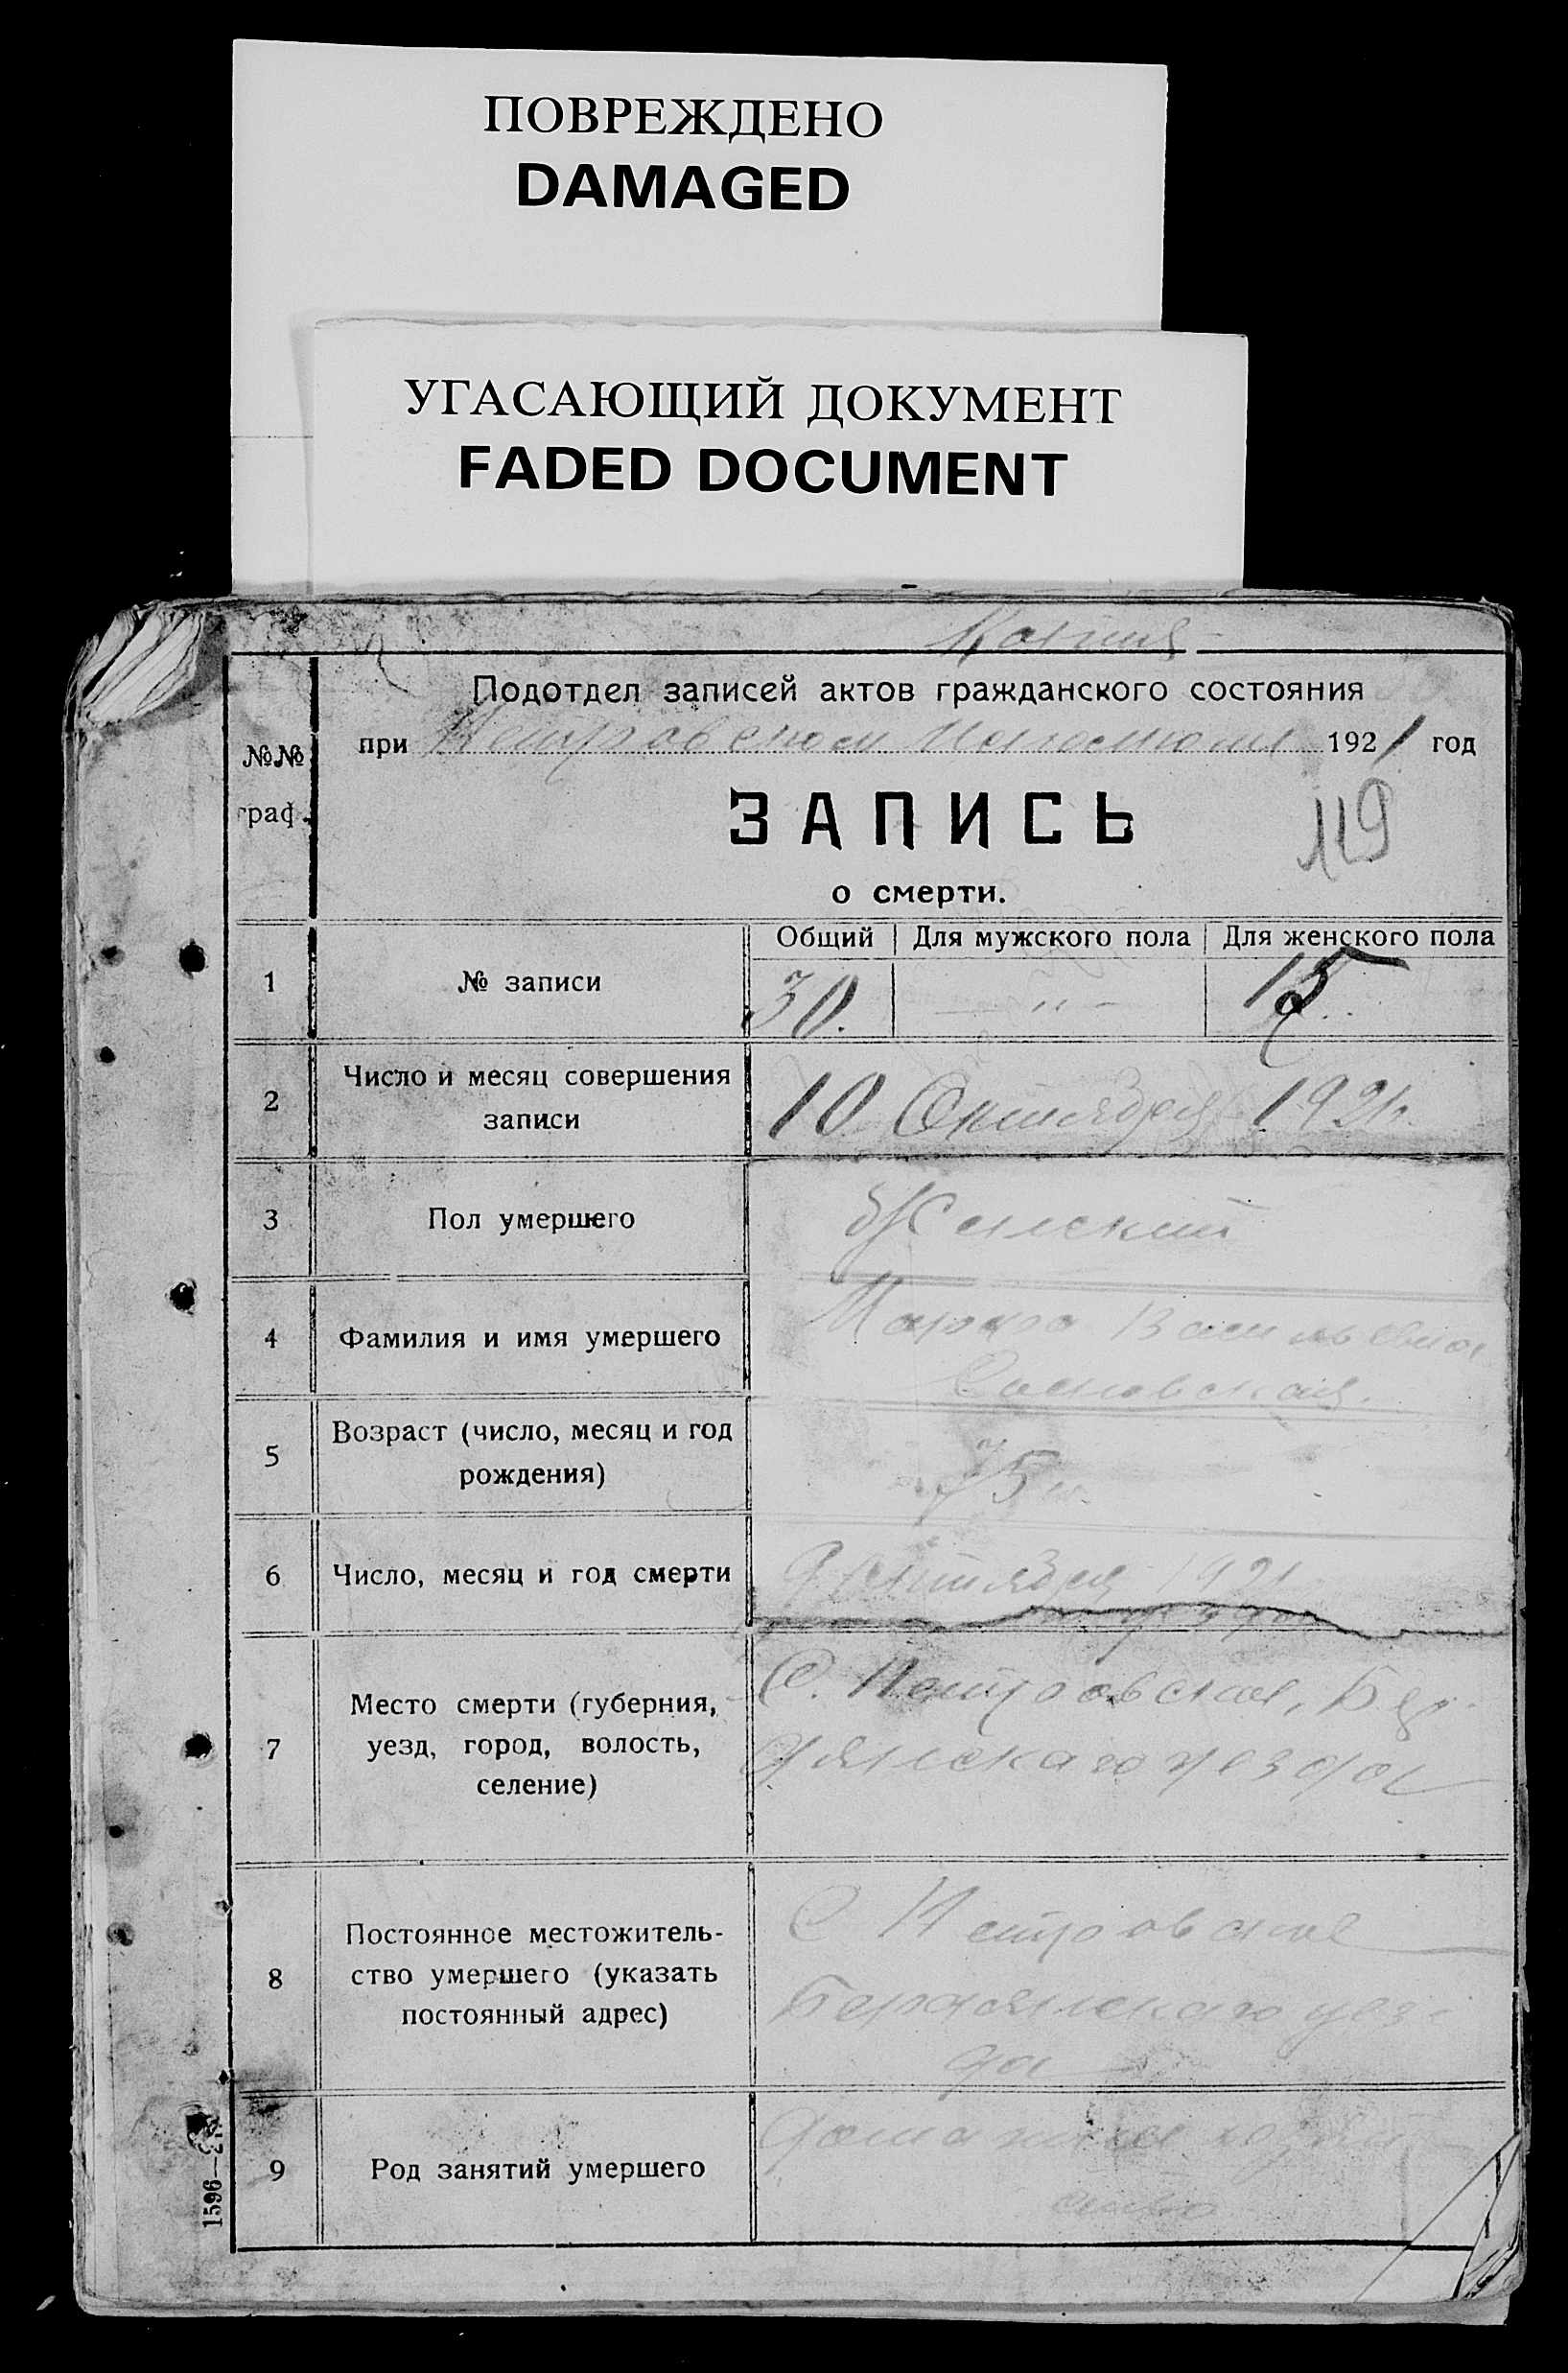 ПОВРЕЖДЕНО
DAMAGED
УГАСАЮЩИЙ ДОКУМЕНТ
FADED DOCUMENT
Копия
Подотдел записей актов гражданского состояния
№№ граф.
при Петровском 1921 год
ЗАПИСЬ
119
о смерти.
Общий Для мужского пола Для женского пола
1 № записи 30. — „ — 15
2 Число и месяц совершения
записи
10 Октября 1921 г.
3 Пол умершего Женский
4 Фамилия и имя умершего
Марфа Васильевна
5 Возраст (число, месяц и год
рождения)
75
6 Число, месяц и год смерти 9 1921
7 Место смерти (губерния,
уезд, город, волость,
селение)
С. Петровское, Бер-
дянскаго уезда
8 Постоянное местожитель-
ство умершего (указать
постоянный адрес)
С Петровское
Бердянскаго уез-
да
9 Род занятий умершего
1596—21